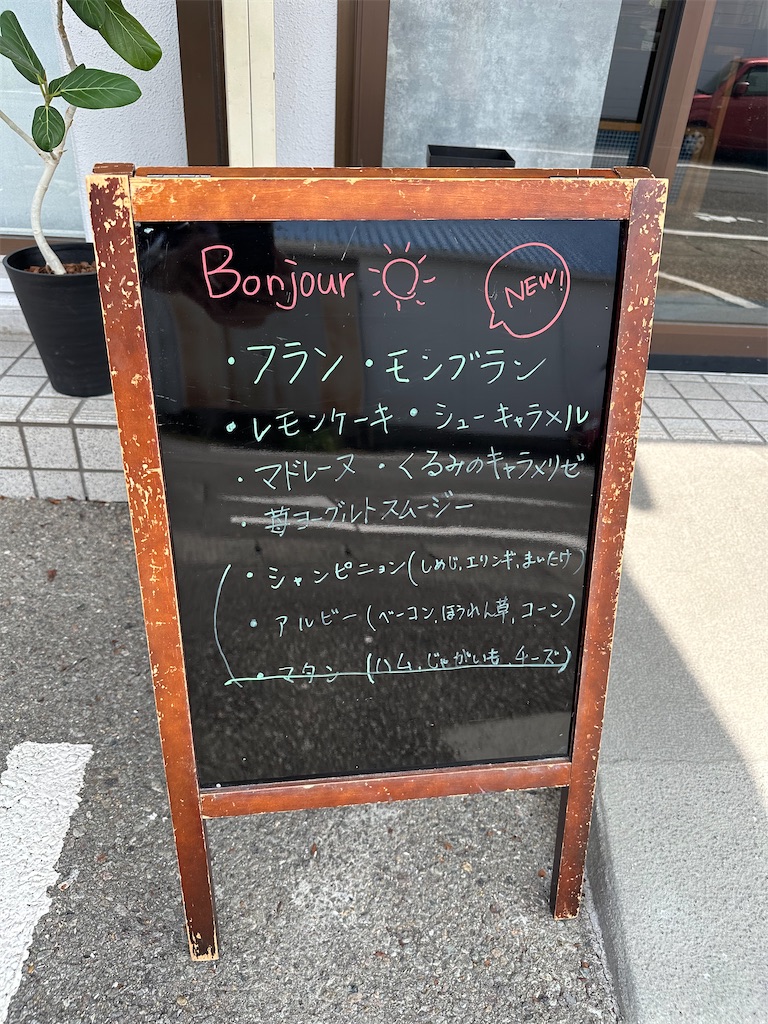 Bonjour NEW!
・フラン ・モンブラン
・レモンケーキ ・シューキャラメル
・マドレーヌ ・くるみのキャラメリゼ
・苺ヨーグルトスムージー
・シャンピニョン(しめじ,エリンギ,まいたけ)
・アルビー(ベーコン,ほうれん草,コーン)
・マタン (ハム,じゃがいも,チーズ)